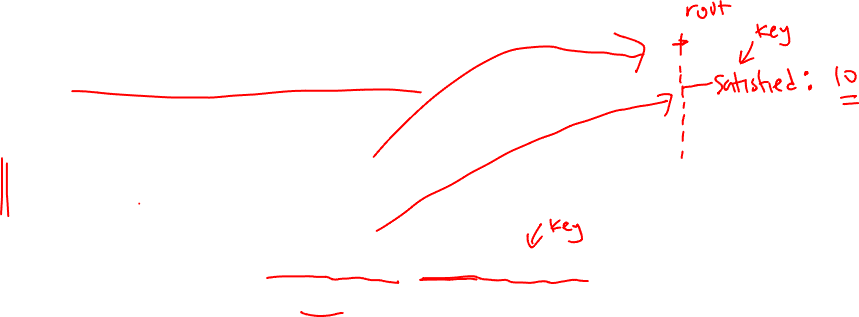 root
key
Satisfied: 10
key